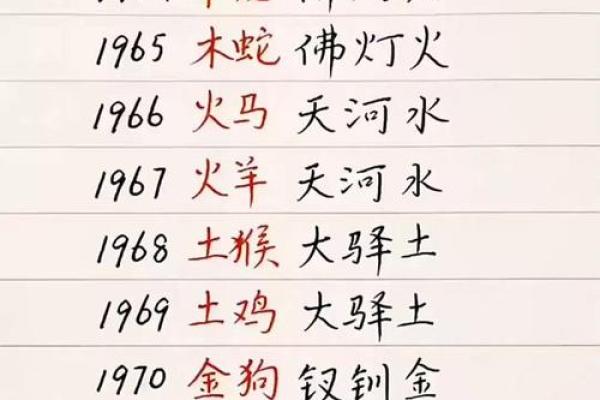 1965 木蛇 佛灯火
1966 火马 天河水
1967 火羊 天河水
1968 土猴 大驿土
1969 土鸡 大驿土
1970 金狗 钗钏金